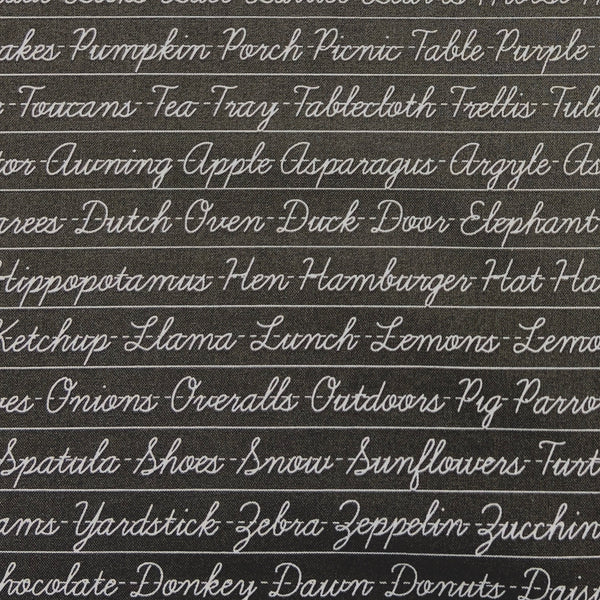 Pumpkin Porch Picnic Table Purple
Toucans Tea Tray Tablecloth Trellis
Awning Apple Asparagus Argyle
Dutch Oven Duck Door Elephant
Hippopotamus Hen Hamburger Hat
Ketchup Llama Lunch Lemons
Onions Overalls Outdoors Pig
Spatula Shoes Snow Sunflowers
Yardstick Zebra Zeppelin
Chocolate Donkey Dawn Donuts